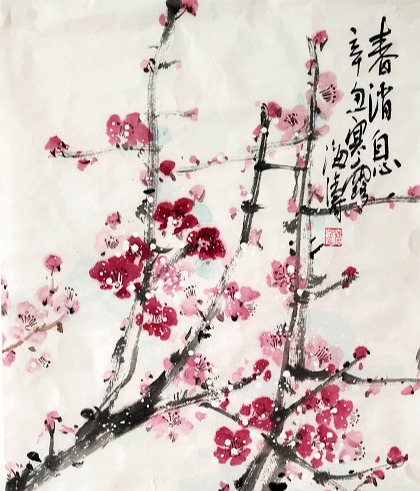 春消息
辛丑寒露
海涛